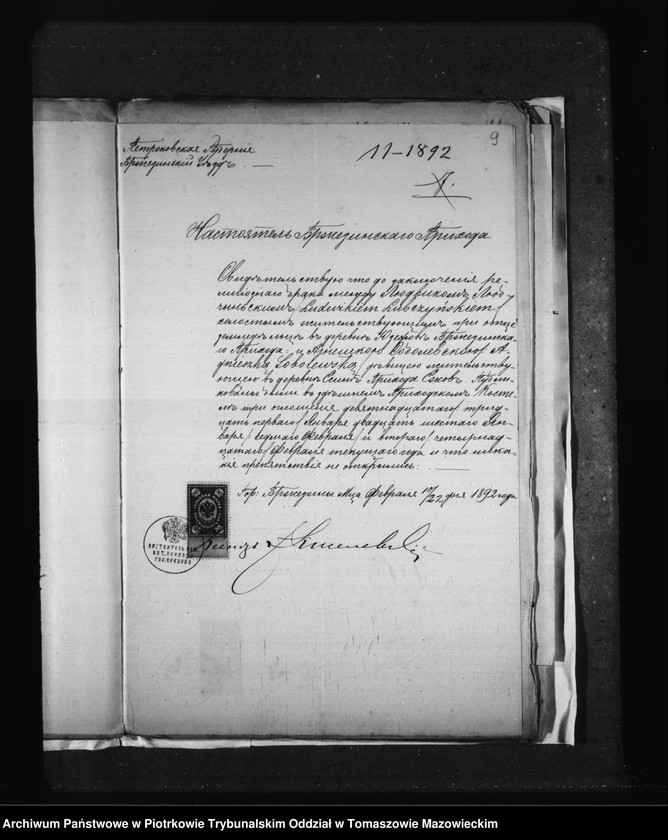 Петроковская Губернія
Брезинскій Уѣздъ. —
9
11-1892
Настоятель Брезинскаго Прихода
Свидѣтельствую что до заключенія ре-
лигіознаго брака между Людвикомъ
(Ludwikiem Lubczyńskiem)
холостымъ жительствующимъ при отцѣ
въ деревнѣ Брезинска-
го Прихода и Агнешкою Соболевскою (A-
gnieszką Sobolewską) дѣвицею жительству-
ющею въ деревнѣ Прихода
были въ здѣшнемъ Приходскомъ Косте-
лѣ три оглашенія девятнадцатаго (трид-
цать перваго) Января двадцать шестаго Ян-
варя (седьмаго Февраля) и втораго (четырнад-
цатаго) Февраля текущаго года и что никa-
кія препятствія не открылись: —
Гор. Брезины М-ца Февраля 10/22 дня 1892 года
НАСТОЯТЕЛЬ
Archiwum Państwowe w Piotrkowie Trybunalskim Oddział w Tomaszowie Mazowieckim